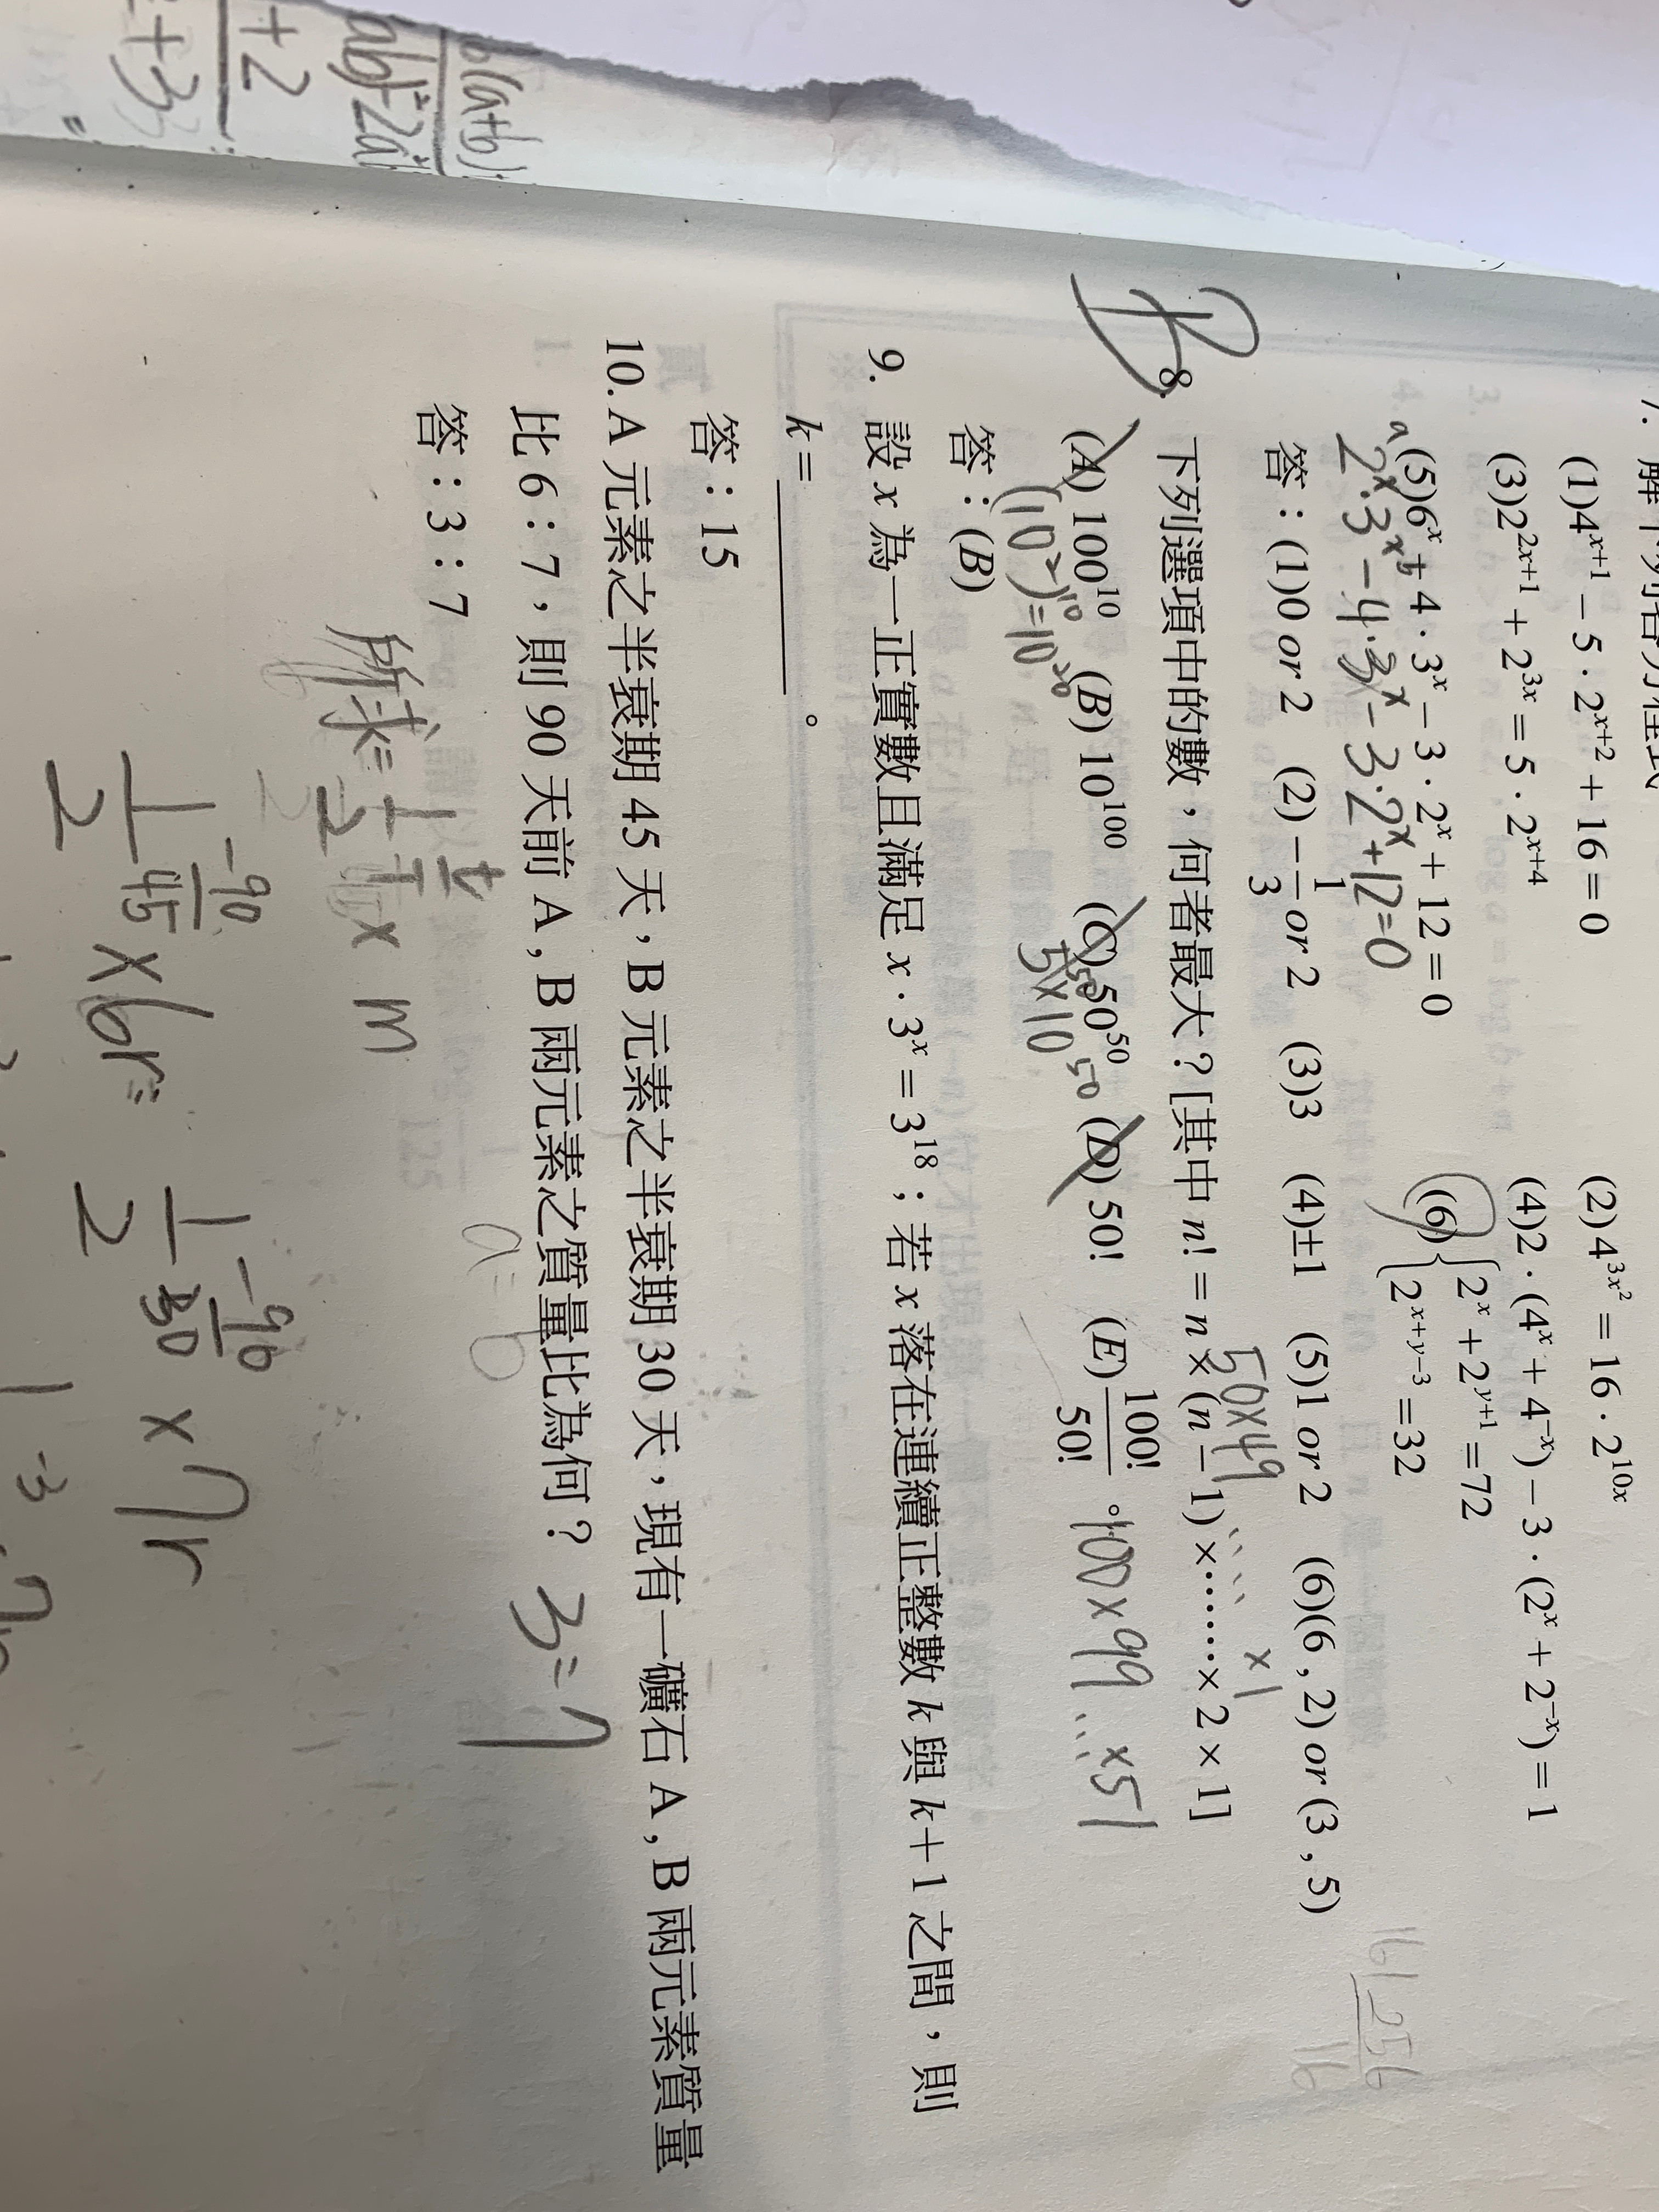 b(a+b)
+2
+3
7. 解下列各方程式
(1)4^{x+1} − 5 · 2^{x+2} + 16 = 0
(2)4^{3x^2} = 16 · 2^{10x}
(3)2^{2x+1} + 2^{3x} = 5 · 2^{x+4}
(4)2 · (4^x + 4^{−x}) − 3 · (2^x + 2^{−x}) = 1
a b
(5)6^x + 4 · 3^x − 3 · 2^x + 12 = 0
(6) { 2^x + 2^{y+1} = 72
2^{x+y−3} = 32
2^x · 3^x − 4 · 3^x − 3 · 2^x + 12 = 0
16 256
16
答：(1)0 or 2 (2)−1/3 or 2 (3)3 (4)±1 (5)1 or 2 (6)(6 , 2) or (3 , 5)
50×49 .... ×1
B
8. 下列選項中的數，何者最大？[其中 n! = n × (n − 1) × ⋯⋯ × 2 × 1]
(A) 100^{10} (B) 10^{100} (C) 50^{50} (D) 50! (E) 100!/50! 。
100 × 99 ... ×51
(10^2)^{10} = 10^{20}
5^{50}×10^{50}
答：(B)
9. 設 x 為一正實數且滿足 x · 3^x = 3^{18}；若 x 落在連續正整數 k 與 k+1 之間，則
k = ______ 。
答：15
10. A 元素之半衰期 45 天，B 元素之半衰期 30 天，現有一礦石 A , B 兩元素質量
比 6：7，則 90 天前 A , B 兩元素之質量比為何？
3=7
答：3：7
a=b
所求= 1/2^{t/T} × m
1/2^{−90/45} × 6r = 1/2^{−90/30} × 7r